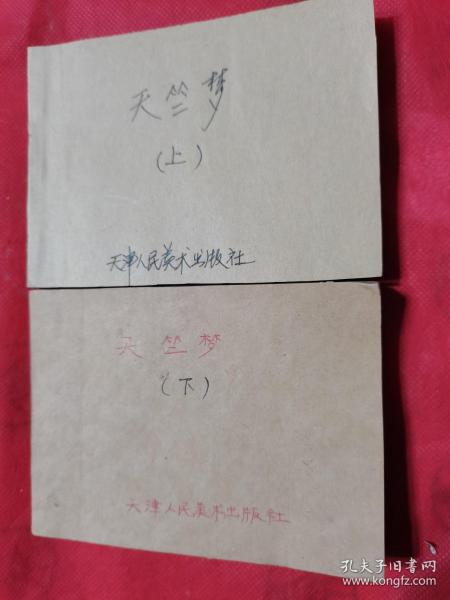 天竺梦
(上)
天津人民美术出版社
天竺梦
(下)
天津人民美术出版社
孔夫子旧书网
www.kongfz.com